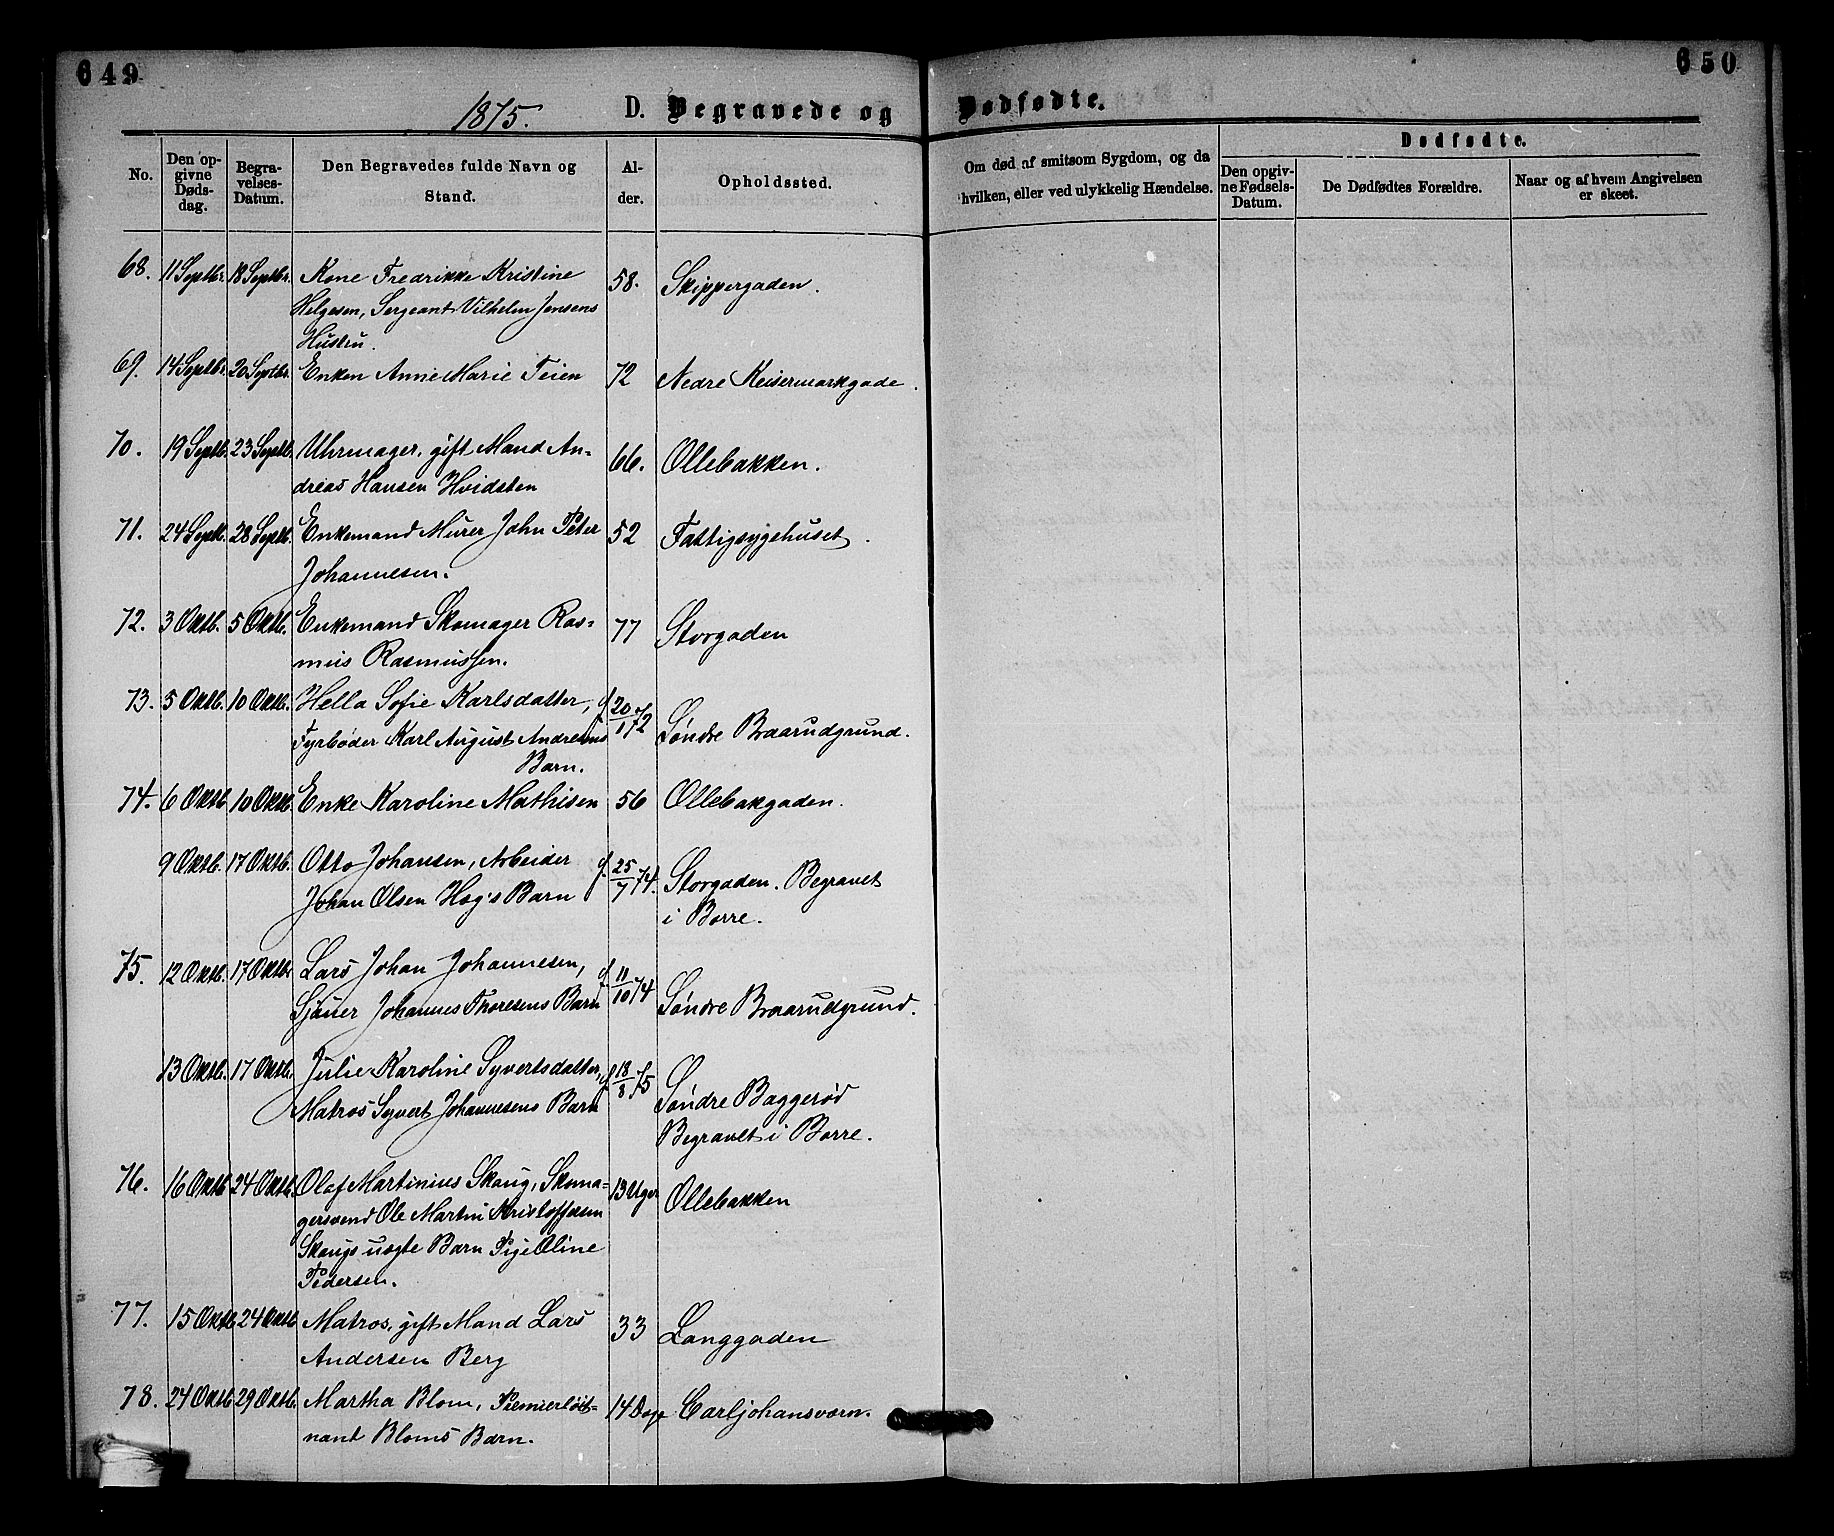 649
650
1875. D. Begravede og Dødfødte.
No.
Den op-
givne
Døds-
dag.
Begra-
velses-
Datum.
Den Begravedes fulde Navn og
Stand.
Al-
der.
Opholdssted.
Om død af smitsom Sygdom, og da
hvilken, eller ved ulykkelig Hændelse.
Dødfødte.
Den opgiv-
ne Fødsels-
Datum.
De Dødfødtes Forældre.
Naar og af hvem Angivelsen
er skeet.
68. 11 Septbr. 18 Septbr. Kone Fredrikke Kristine 58. Skippergaden.
Helgesen, Sergeant Vilhelm Jensens
Hustru.
69. 14 Septbr. 20 Septbr. Enken Anne Marie Teien 72 Nedre Keisermarkgade.
70. 19 Septb. 23 Septb. Uhrmager, gift Mand An- 66. Ollebakken.
dreas Hansen Hvidsten
71. 24 Septb. 28 Septb. Enkemand Murer John Peter 52 Fattigsygehuset.
Johannesen.
72. 3 Oktb. 5 Oktb. Enkemand Skomager Ras- 77 Storgaden
mus Rasmussen.
73. 5 Oktb. 10 Oktb. Hella Sofie Karlsdatter, f. 20/1 72 Søndre Braarudgrund.
Fyrbøder Karl August Andreasens
Barn.
74. 6 Oktb. 10 Oktb. Enke Karoline Mathisen 56 Ollebakgaden.
9 Oktb. 17 Oktb. Otto Johansen, Arbeider f. 25/7 74. Storgaden. Begravet
Johan Olsen Hog's Barn i Borre.
75. 12 Oktb. 17 Oktb. Lars Johan Johannesen, f. 11/10 74 Søndre Braarudgrund.
Sjauer Johannes Thoresens Barn
13 Oktb. 17 Oktb. Julie Karoline Syvertsdatter, f. 18/8 75 Søndre Baggerød
Matros Syvert Johannesens Barn Begravet i Borre.
76. 16 Oktb. 24 Oktb. Olaf Martinius Skaug, Skoma- 13 Uger Ollebakken
gersvend Ole Martin Kristoffersen
Skaugs uægte Barn Pige Oline
Pedersen.
77. 15 Oktb. 24 Oktb. Matros, gift Mand Lars 33 Langgaden
Andersen Berg
78. 24 Oktb. 29 Oktb. Martha Blom, Premierløit- 14 Dage Carljohansværn.
nant Bloms Barn.